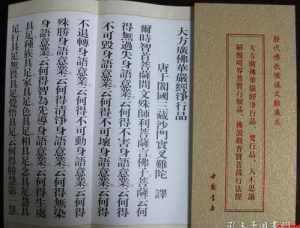 歷代佛教
大方廣佛華嚴經淨行品、梵行品、入不思議
解脫境界普賢行願品、佛說觀普賢菩薩行法經
中國書店
大方廣佛華嚴經淨行品
唐于闐國三藏沙門實叉難陀 譯
爾時智首菩薩問文殊師利菩薩言佛子菩薩云何
得無過失身語意業云何得不害身語意業云何
得不可毀身語意業云何得不可壞身語意業云何得
不退轉身語意業云何得不可動身語意業云何得
殊勝身語意業云何得清淨身語意業云何得無染
身語意業云何得智為先導身語意業云何得生處
具足種族具足家具足色具足相具足念具足慧具
足行具足無畏具足覺悟具足云何得勝慧第一慧
孔夫子旧书网